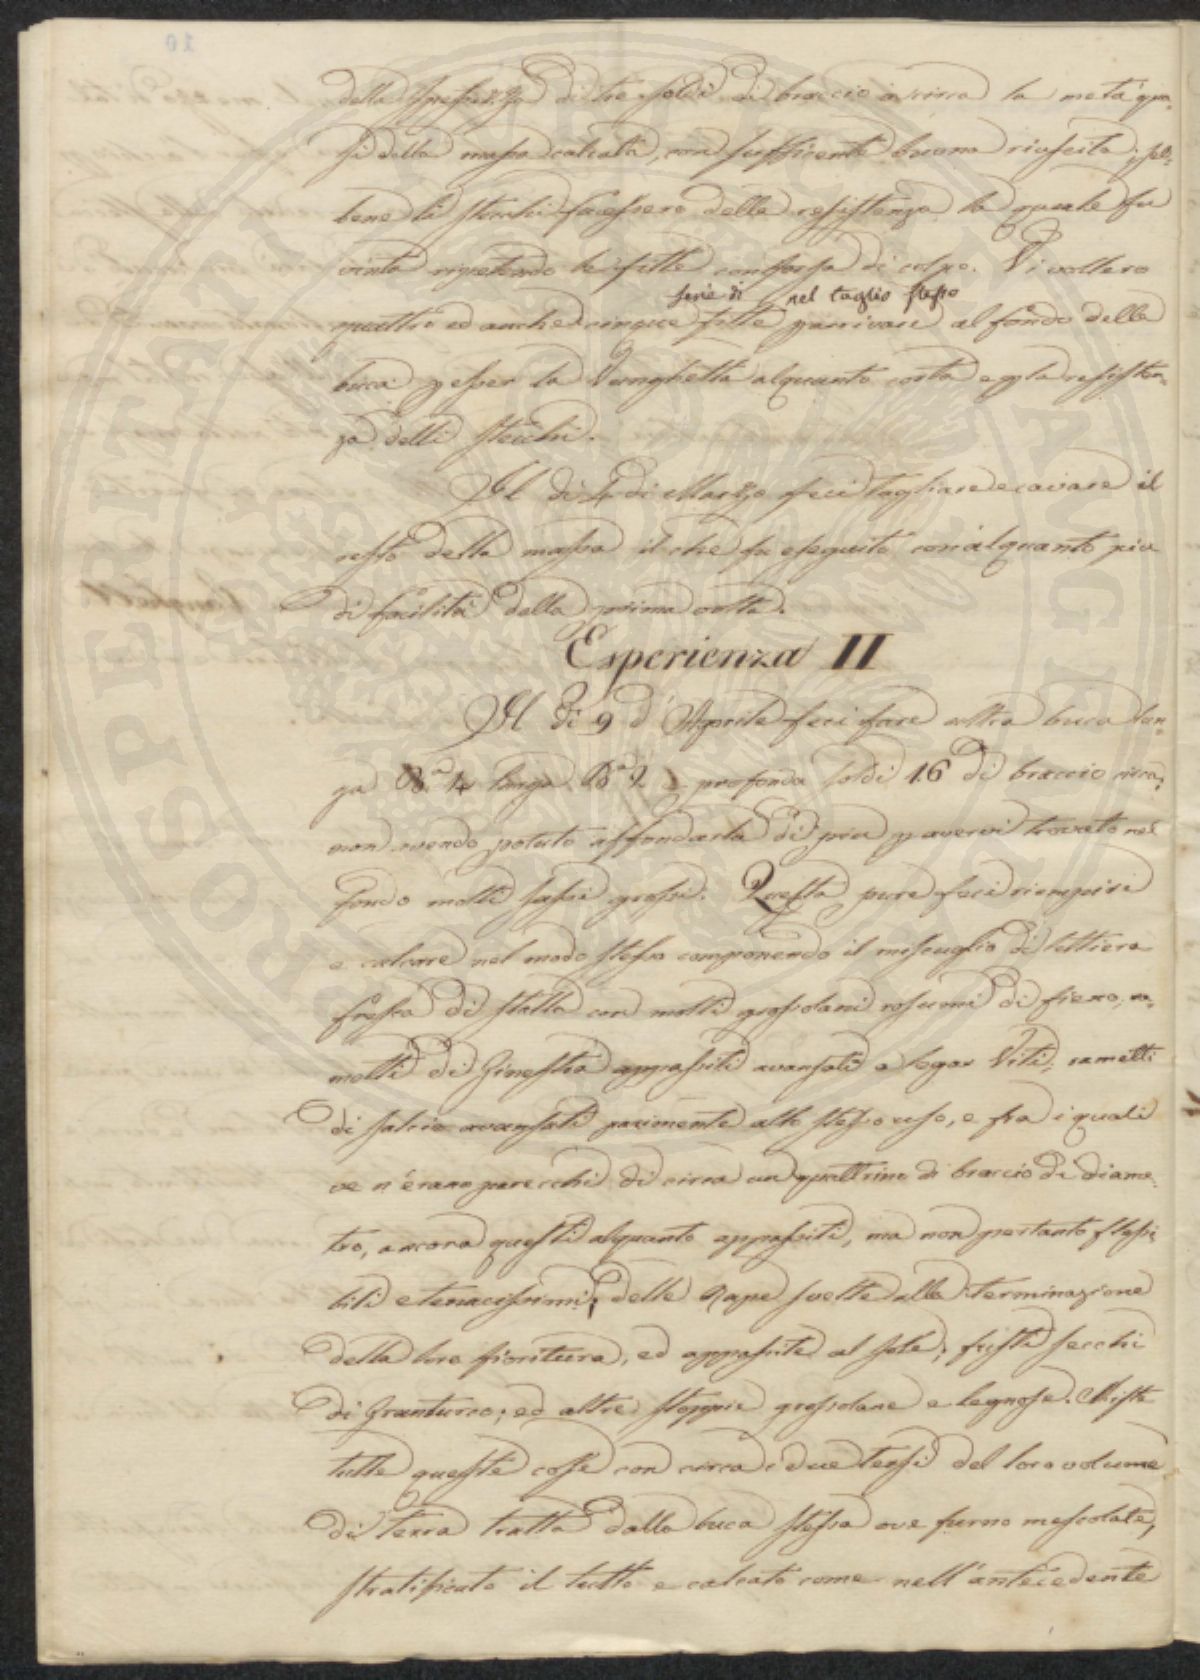 della spessezza di tre soldi di braccio incirca la metà qua=
si della massa calcata, con sufficiente buona riuscita; seb=
bene li stecchi facessero della resistenza la quale fu
vinta ripetendo le fitte con forza di colpo. Vi vollero
serie di nel taglio stesso
quattro ed anche cinque fitte p arrivare al fondo della
buca p esser la Vanghetta alquanto corta e p la resisten=
za delli stecchi.
Il dì 4 di Marzo feci tagliare e cavare il
resto della massa il che fu eseguito con alquanto più
di facilità della prima volta.
Esperienza II
Il dì 9 d'Aprile feci fare altra buca lun=
ga B.a 4 larga B.a 2 profonda soldi 16 di braccio circa;
non avendo potuto affondarla di più p avervi trovato nel
fondo molti sassi grossi. Questa pure feci riempire
e calcare nel modo stesso componendo il miscuglio di lettiera
fresca di stalla con molti grossolani rosumi di fieno, ra=
metti di Ginestra appassiti avanzati a legar Viti; rametti
di salcio avanzati parimente allo stesso uso, e fra i quali
ve n'erano parecchi di circa un quattrino di braccio di diame=
tro, ancora questi alquanto appassiti, ma non pertanto flessi=
bili e tenacissimi; delle Rape svelte alla terminazione
della loro fioritura, ed appassite al sole; fusti secchi
di Granturco; ed altre stoppie grossolane e legnose. Miste
tutte queste cose con circa due terzi del loro volume
di terra tratta dalla buca stessa ove furno mescolate,
stratificato il tutto e calcato come nell'antecedente